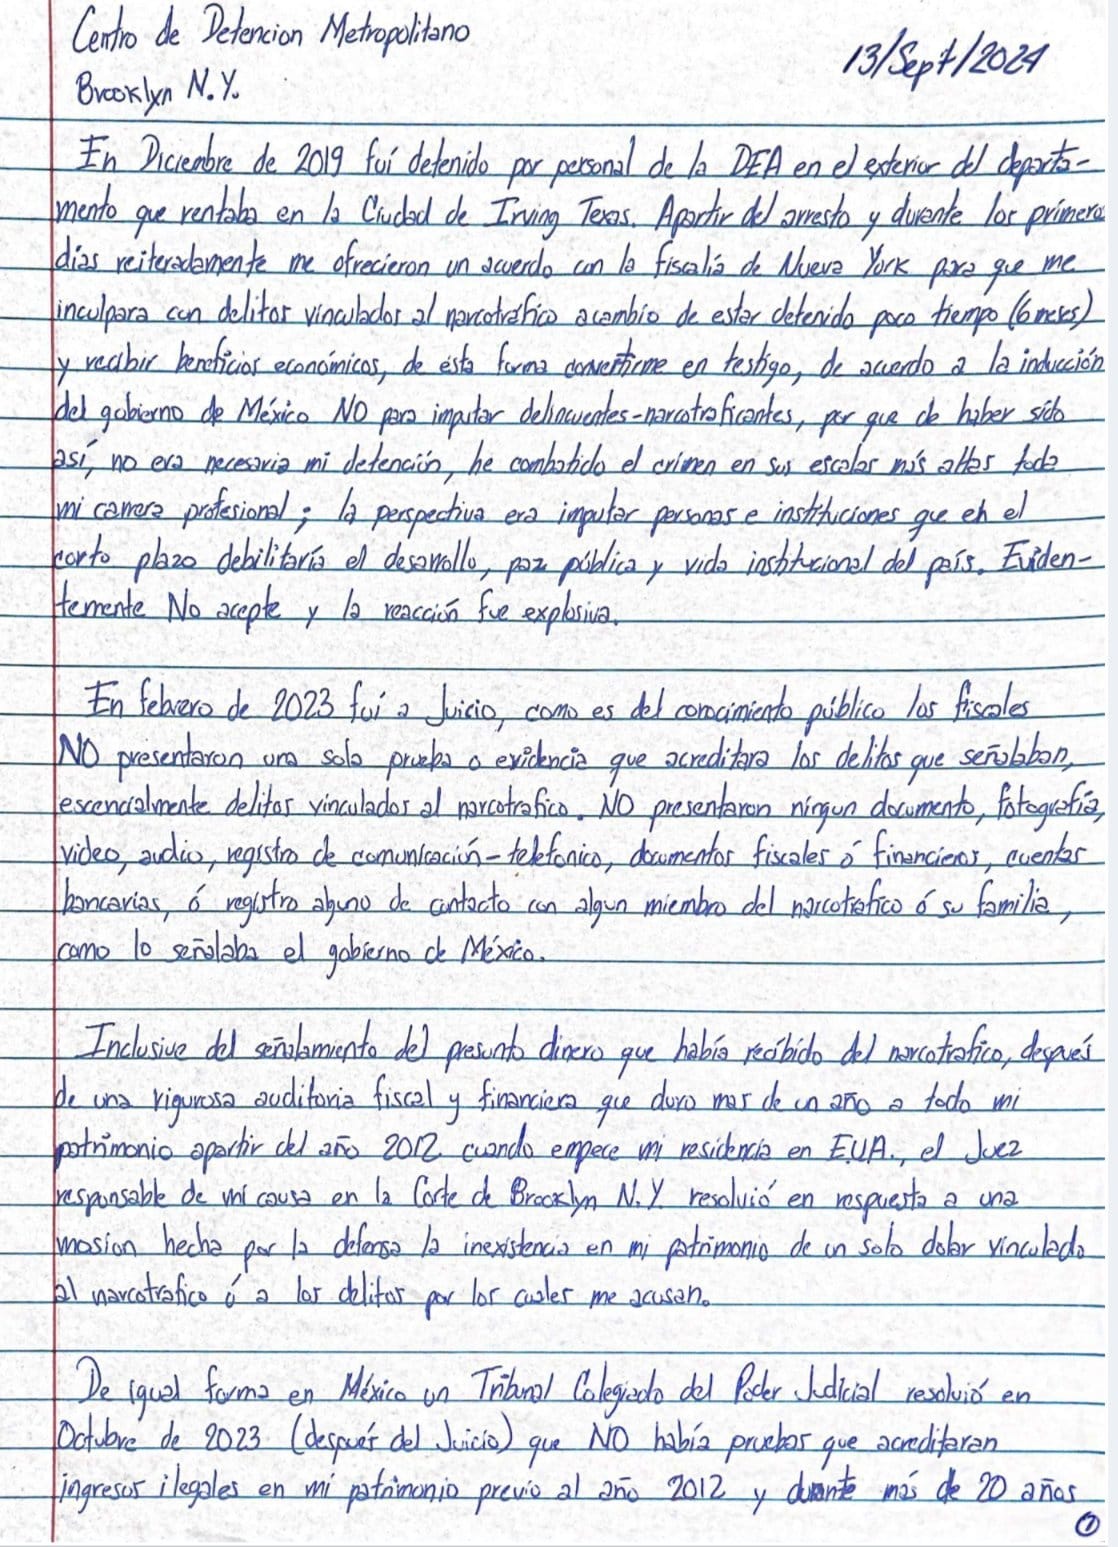 Centro de Detencion Metropolitano
13/Sept/2024
Brooklyn N.Y.
En Diciembre de 2019 fuí detenido por personal de la DEA en el exterior del departa-
mento que rentaba en la Ciudad de Irving Texas. Apartir del arresto y durante los primeros
días reiteradamente me ofrecieron un acuerdo con la fiscalía de Nueva York para que me
inculpara con delitos vinculados al narcotrafico acambio de estar detenido poco tiempo (6 meses)
y recibir beneficios económicos, de ésta forma convertirme en testigo, de acuerdo a la inducción
del gobierno de México NO para imputar delincuentes-narcotraficantes, por que de haber sido
así, no era necesaria mi detención, he combatido el crimen en sus escalas más altas toda
mi carrera profesional; la perspectiva era imputar personas e instituciones que en el
corto plazo debilitaría el desarrollo, paz pública y vida institucional del país. Eviden-
temente No acepte y la reacción fue explosiva.
En febrero de 2023 fui a Juicio, como es del conocimiento público los fiscales
NO presentaron una sola prueba o evidencia que acreditara los delitos que señalaban,
escencialmente delitos vinculados al narcotrafico. NO presentaron ningun documento, fotografía,
video, audio, registro de comunicación-telefonico, documentos fiscales ó financieros, cuentas
bancarias, ó registro alguno de contacto con algun miembro del narcotrafico ó su familia,
como lo señalaba el gobierno de México.
Inclusive del señalamiento del presunto dinero que había recibido del narcotrafico, después
de una rigurosa auditoria fiscal y financiera que duro mas de un año a todo mi
patrimonio apartir del año 2012 cuando empece mi residencia en EUA., el Juez
responsable de mi causa en la Corte de Brooklyn N.Y. resolvió en respuesta a una
mosion hecha por la defensa la inexistencia en mi patrimonio de un solo dolar vinculado
al narcotrafico ó a los delitos por los cuales me acusan.
De igual forma en México un Tribunal Colegiado del Poder Judicial resolvió en
Octubre de 2023 (después del Juicio) que NO había pruebas que acreditaran
ingresos ilegales en mi patrimonio previo al año 2012 y durante más de 20 años
1